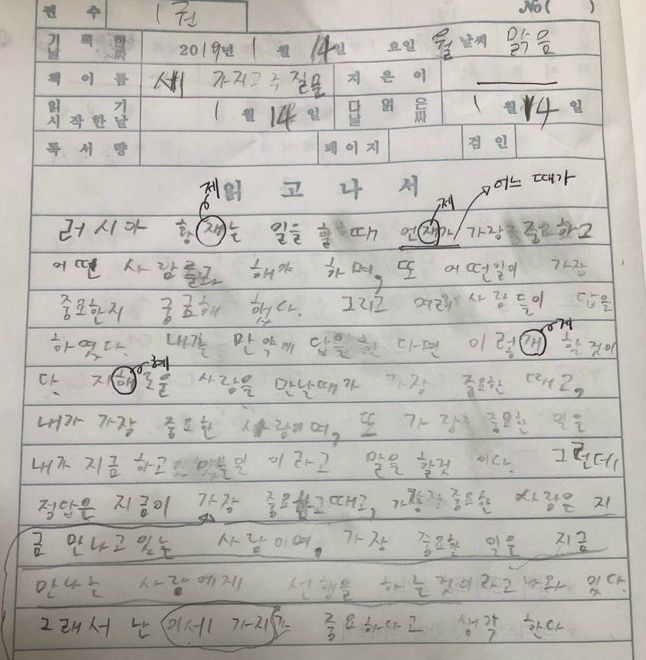 권수 1권 No( )
기록한 날짜 2019년 1월 14일 요일 월 날씨 맑음
책이름 세 가지고주 질문 지은이
읽기 시작한날 1월 14일 다 읽은 날짜 1월 14일
독서량 페이지 검인
제 읽고나서 제 어느 때가
러시아 황재는 일을 할때 언재가 가장 중요하고
어떤 사람를 해야 하며, 또 어떤일이 가장
중요한지 궁금해 했다. 그리고 여러 사람들이 답을
하였다. 내가 만약에 답을 한다면 이렇깨 할것이
게
다. 지해로운 사람을 만날때가 가장 중요한 때고,
혜
내가 가장 중요한 사람이며, 또 가장 중요한 일은
내가 지금 하고 이라고 말을 할것 이다. 그런데
정답은 지금이 가장 중요한 때고, 가장 중요한 사람은 지
금 만나고 있는 사람이며, 가장 중요한 익은 지금
만나는 사람에제 선행을 하는것이라고 나와 있다.
그래서 난 이세 가지가 중요하다고 생각 한다